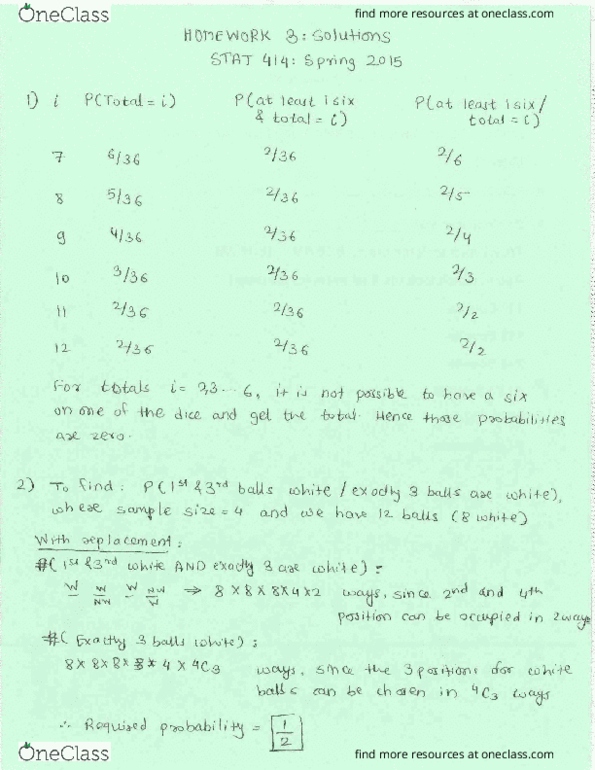 OneClass
find more resources at oneclass.com
HOMEWORK 3: Solutions
STAT 414: Spring 2015
1) i P(Total = i) P(at least 1 six & total = i) P(at least 1 six / total = i)
7 6/36 2/36 2/6
8 5/36 2/36 2/5
9 4/36 2/36 2/4
10 3/36 2/36 2/3
11 2/36 2/36 2/2
12 2/36 2/36 2/2
For totals i = 2,3... 6, it is not possible to have a six
on one of the dice and get the total. Hence those probabilities
are zero.
2) To find: P(1st & 3rd balls white / exactly 3 balls are white),
where sample size = 4 and we have 12 balls (8 white)
With replacement:
#(1st & 3rd white AND exactly 3 are white) =
W W/NW W NW/W ⇒ 8 x 8 x 8 x 4 x 2 ways, since 2nd and 4th
position can be occupied in 2 ways
#(Exactly 3 balls white) :
8 x 8 x 8 x 4 x 4C3 ways, since the 3 positions for white
balls can be chosen in 4C3 ways
∴ Required probability = 1/2
OneClass
find more resources at oneclass.com